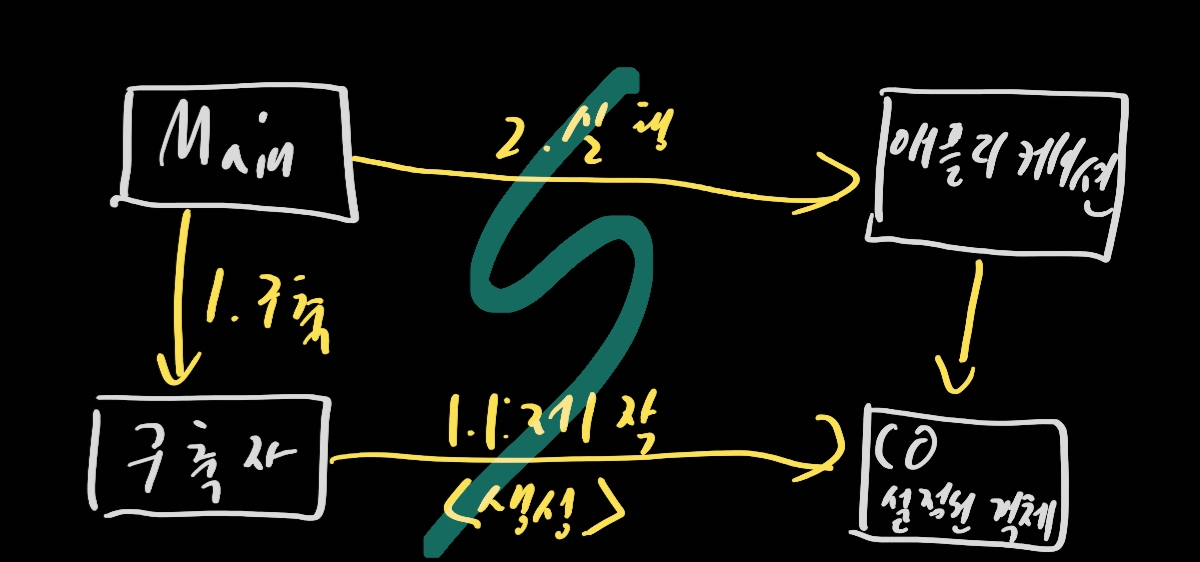 Main
2. 실행
애플리케이션
1. 구축
구축자
1.1. 제작
<생성>
CO
설정된 객체